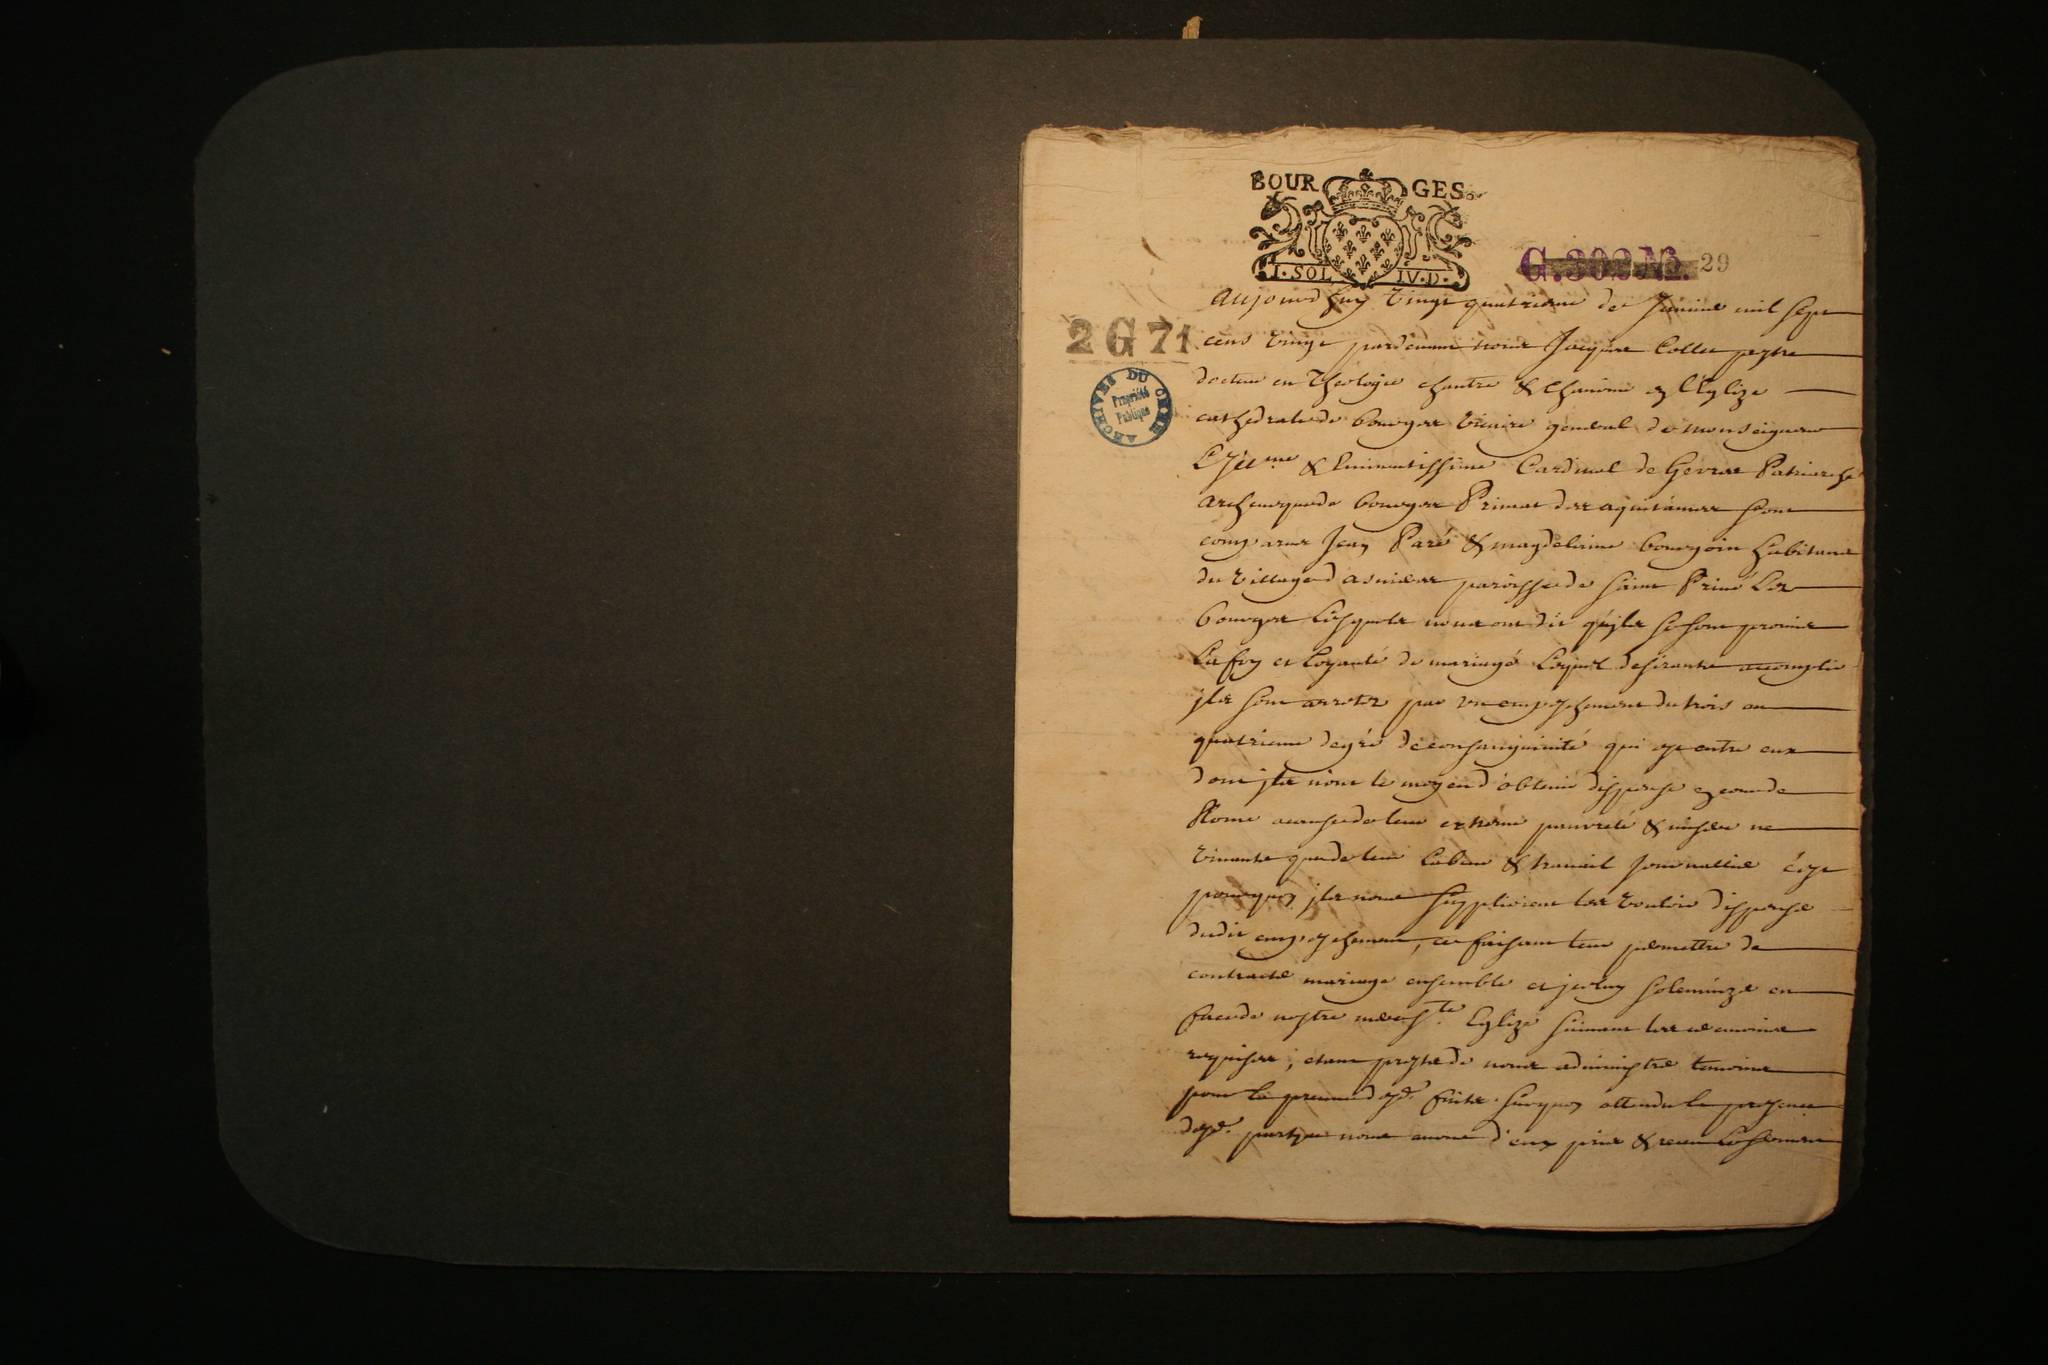 BOUR GES
I·SOL IV·D·
G.309 N3. 29
2 G 71
ARCHIVES DU CHER
Propriété
Publique
Aujourd'huy vingt quatrieme de Janvier mil sept
cens vingt pardevant nous Jacques Collet prestre
docteur en Theologie chantre & chanoine en l'Eglize
cathedralle de bourges vicaire general de Monseigneur
L'Jll.me & Eminentissime Cardinal de Gevres Patriarche
archevesque de bourges Primat des aquitaines sont
comparus Jean Paré & magdelaine bourgoin habitans
du village d'asnieres paroisse de Saint Privé Lez
bourges Lesquels nous ont dit qu'jls se sont promis
La foy et Loyauté de mariage Lequel desirants accomplir
jls sont arretez par un empeschement du trois au
quatrieme degré de consanguinité qui est entre eux
dont jls n'ont le moyen d'obtenir dispense en cour de
Rome a cause de leur extreme pauvreté & misere ne
vivants que de leur labeur & travail journallier c'est
pourquoy jls nous supplioient les vouloir dispenser
dudit empeschement, ce faisant leur permettre de
contracter mariage ensemble et jceluy soleminzer en
face de nostre mere S.te Eglize suivant les ceremonies
requises; etant prests de nous administrer temoins
pour la preuve d'esd. faits. Surquoy attendu la presence
desd. parties nous avons d'eux pris & receu le serment